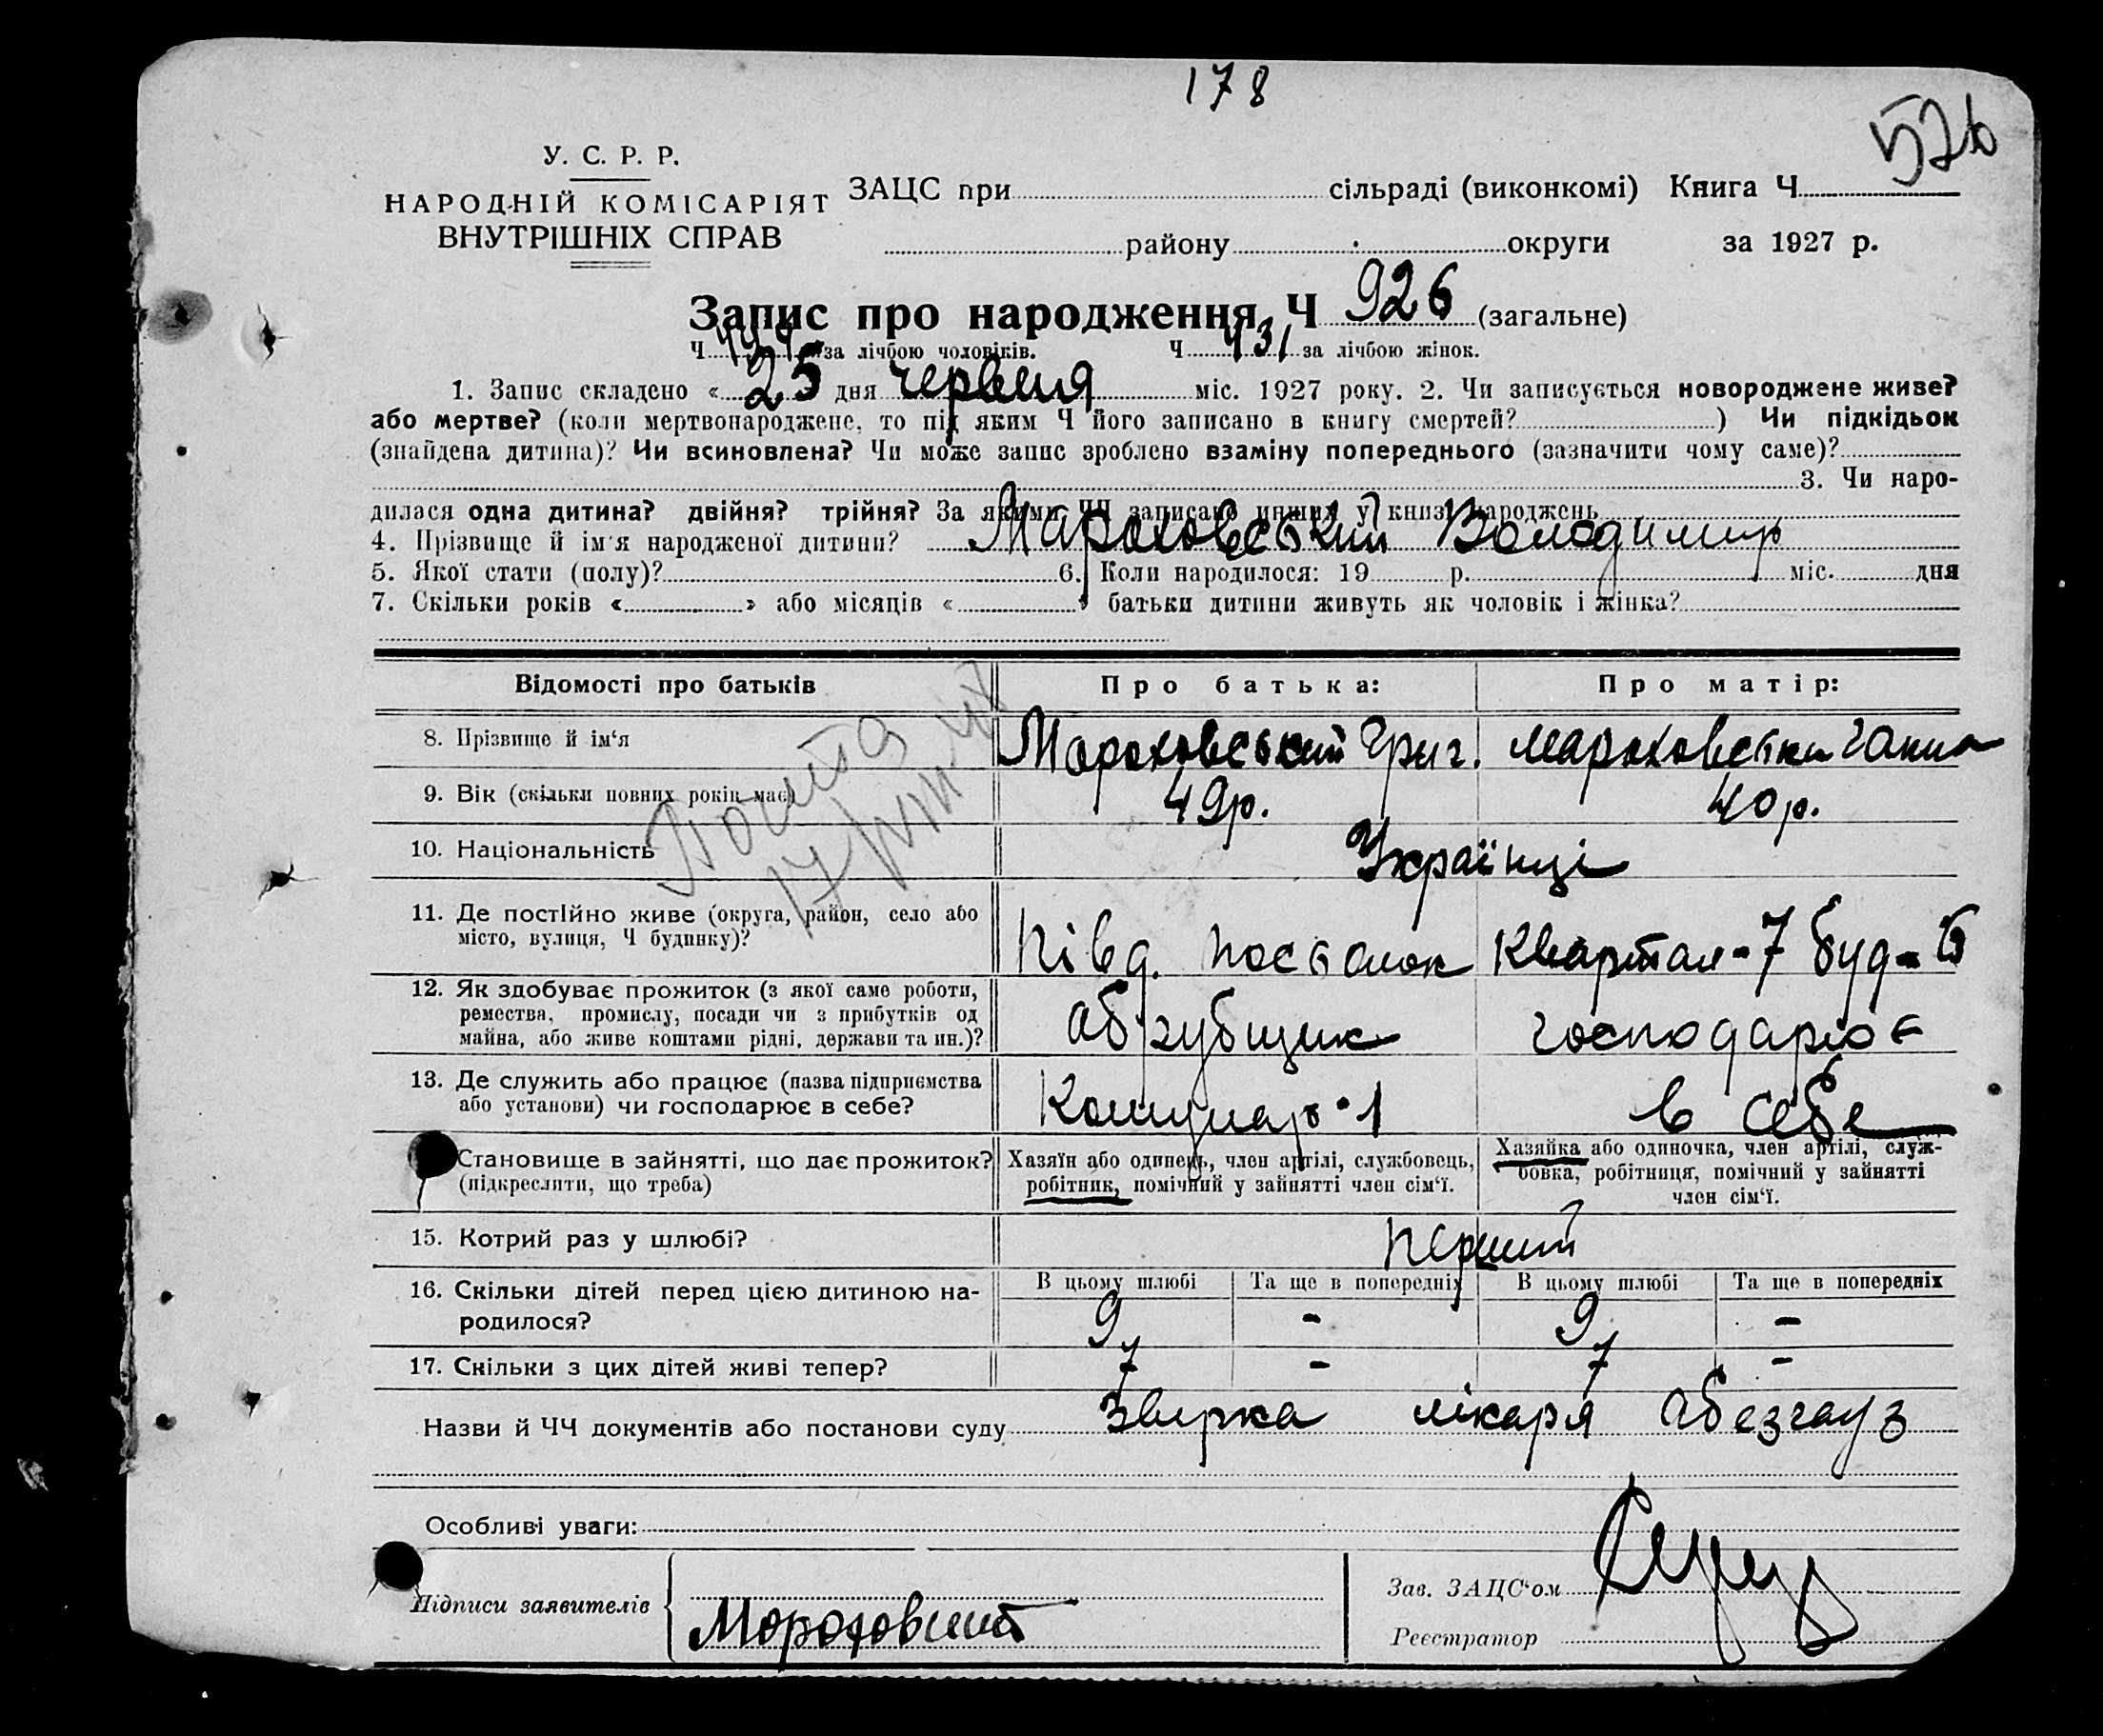 178
526
У. С. Р. Р.
НАРОДНІЙ КОМІСАРІЯТ
ВНУТРІШНІХ СПРАВ
ЗАЦС при сільраді (виконкомі) Книга Ч
району округи за 1927 р.
Запис про народження Ч 926 (загальне)
Ч за лічбою чоловіків. Ч 431 за лічбою жінок.
1. Запис складено « 25 дня червня міс. 1927 року. 2. Чи записується новороджене живе?
або мертве? (коли мертвонароджене, то під яким Ч його записано в книгу смертей? ) Чи підкідьок
(знайдена дитина)? Чи всиновлена? Чи може запис зроблено взаміну попереднього (зазначити чому саме)?
3. Чи наро-
дилася одна дитина? двійня? трійня? За якими ЧЧ записано инших у книзі народжень
4. Прізвище й ім'я народженої дитини? Мароховський Володимир
5. Якої стати (полу)? 6. Коли народилося: 19 р. міс. дня
7. Скільки років « » або місяців « » батьки дитини живуть як чоловік і жінка?
Відомості про батьків Про батька: Про матір:
8. Прізвище й ім'я Мароховський Григ. Мароховська Ганна
9. Вік (скільки повних років має) 49р. 40р.
10. Національність Українці
11. Де постійно живе (округа, район, село або
місто, вулиця, Ч будинку)? Півд. посьолок Квартал-7 буд-
12. Як здобуває прожиток (з якої саме роботи,
ремества, промислу, посади чи з прибутків од
майна, або живе коштами рідні, держави та ин.)? обрубщик господарює
13. Де служить або працює (назва підприємства
або установи) чи господарює в себе? Комунар 1 в себе
Становище в зайнятті, що дає прожиток?
(підкреслити, що треба)
Хазяїн або одинець, член артілі, службовець,
робітник, помічний у зайнятті член сім'ї.
Хазяйка або одиночка, член артілі, служ-
бовка, робітниця, помічний у зайнятті
член сім'ї.
15. Котрий раз у шлюбі? перший
16. Скільки дітей перед цією дитиною на-
родилося?
В цьому шлюбі Та ще в попередніх В цьому шлюбі Та ще в попередніх
9 - 9 -
17. Скільки з цих дітей живі тепер? 7 - 7 -
Назви й ЧЧ документів або постанови суду лікаря
Особливі уваги:
Підписи заявителів Мороховский
Зав. ЗАЦС'ом
Реєстратор